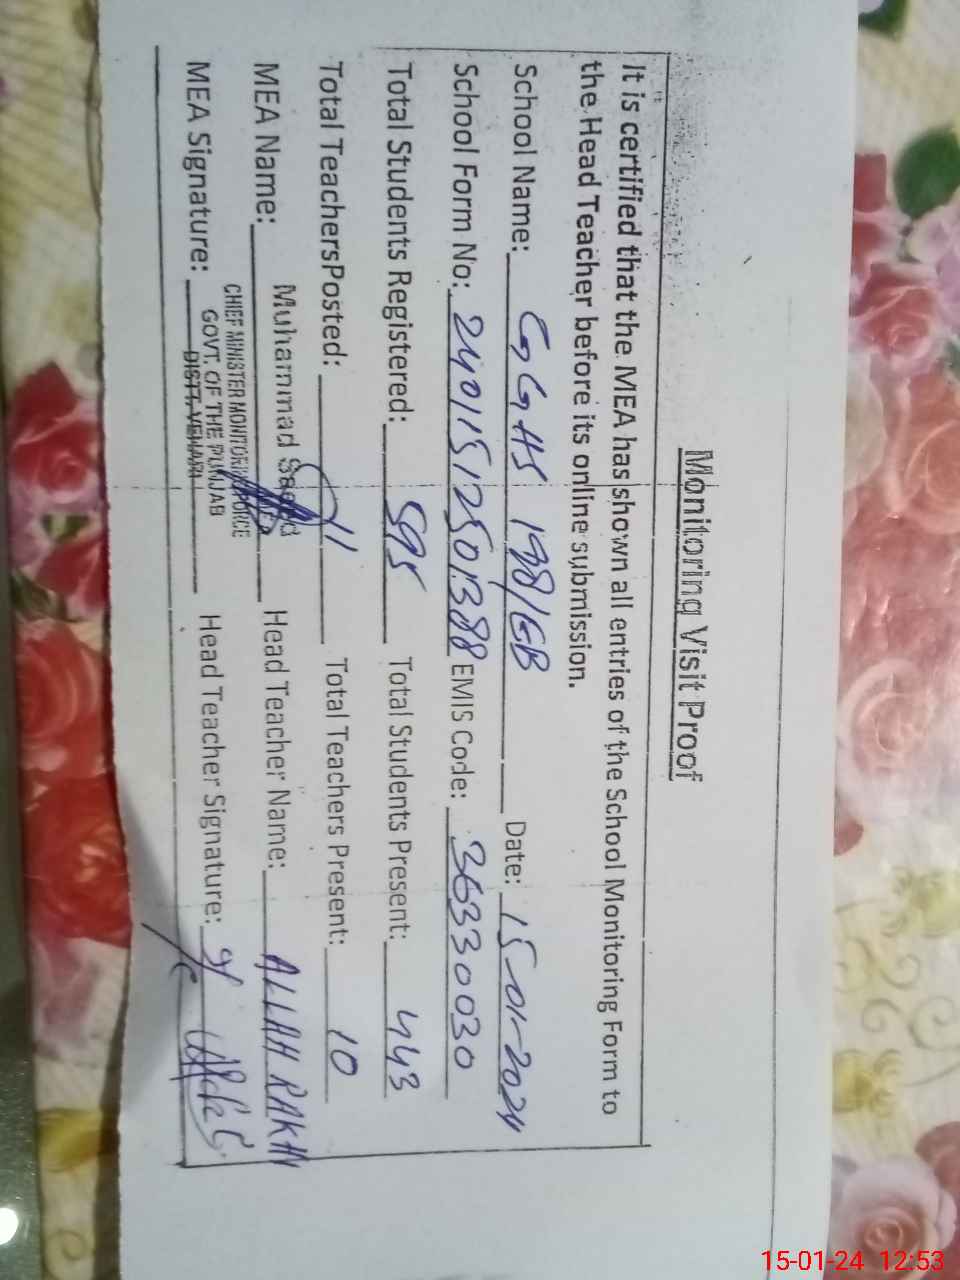 Monitoring Visit Proof
It is certified that the MEA has shown all entries of the School Monitoring Form to
the Head Teacher before its online submission.
School Name: GGHS 198/EB Date: 15-01-2024
School Form No: 24011512501388 EMIS Code: 36330030
Total Students Registered: 595 Total Students Present: 443
Total TeachersPosted: 11 Total Teachers Present: 10
MEA Name: Muhammad Saeed Head Teacher Name: ALLAH RAKHI
CHIEF MINISTER MONITORING FORCE
MEA Signature: GOVT. OF THE PUNJAB Head Teacher Signature:
DISTT. VEHARI
15-01-24 12:53